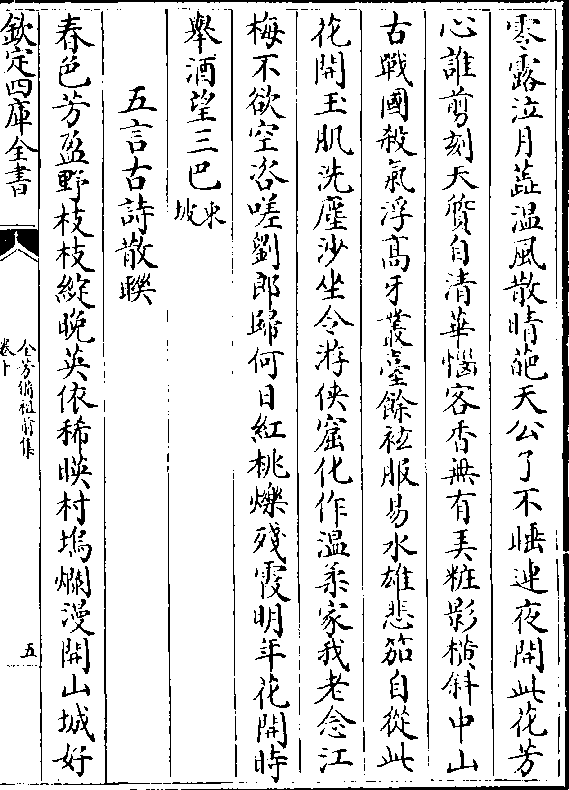 零露泣月蕋温風散晴葩天公了不睡連夜開此花芳
心誰剪刻天質自清華惱客香無有弄粧影橫斜中山
古戰國殺氣浮高牙叢臺餘袨服易水雄悲笳自從此
花開玉肌洗塵沙坐令游俠窟化作温柔家我老念江
梅不欲空咨嗟劉郎歸何日紅桃爍殘霞明年花開時
舉酒望三巴東坡
五言古詩散聯
春色芳盈野枝枝綻晚英依稀暎村塢爛漫開山城好
欽定四庫全書
全芳備祖前集
卷十
五